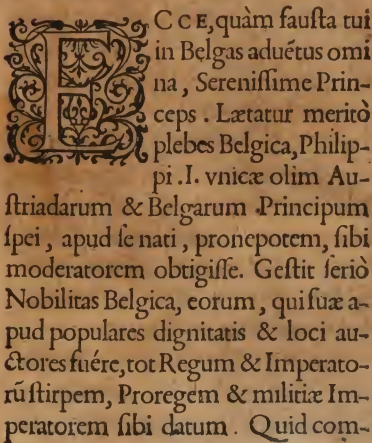 ECCE, quàm fauſta tui
in Belgas aduẽtus omi
na, Sereniſſime Prin-
ceps. Lætatur meritò
plebes Belgica, Philip-
pi .I. vnicæ olim Au-
ſtriadarum & Belgarum Principum
ſpei, apud ſe nati, pronepotem, ſibi
moderatorem obtigiſſe. Geſtit ſeriò
Nobilitas Belgica, eorum, qui ſuæ a-
pud populares dignitatis & loci au-
ctores fuére, tot Regum & Imperato-
rũ ſtirpem, Proregem & militiæ Im-
peratorem ſibi datum. Quid com-